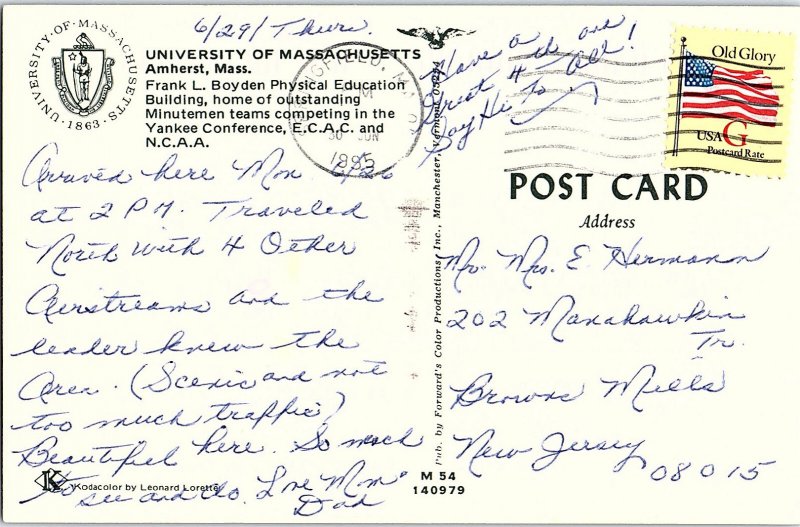 6/29/Thurs.
UNIVERSITY OF MASSACHUSETTS
1863
UNIVERSITY OF MASSACHUSETTS
Amherst, Mass.
Frank L. Boyden Physical Education
Building, home of outstanding
Minutemen teams competing in the
Yankee Conference, E.C.A.C. and
N.C.A.A.
Arrived here Mon 6/26
at 2 PM. Traveled
North with 4 Other
Airstreams and the
leader knew the
Area. (Scenic and not
too much traffic)
Beautiful here. So much
to see and do. Love Mom
Dad
K
Kodacolor by Leonard Lorette
Pub. by Forward's Color Productions, Inc., Manchester, Vermont 05254
M 54
140979
SPRINGFIELD, MA
PM
30 JUN
1995
Have a
Great 4th and
Say Hi To All!
Old Glory
USA G
Postcard Rate
POST CARD
Address
Mr. Mrs. E. Hermann
202 Manahawkin
Tr.
Browns Mills
New Jersey
08015